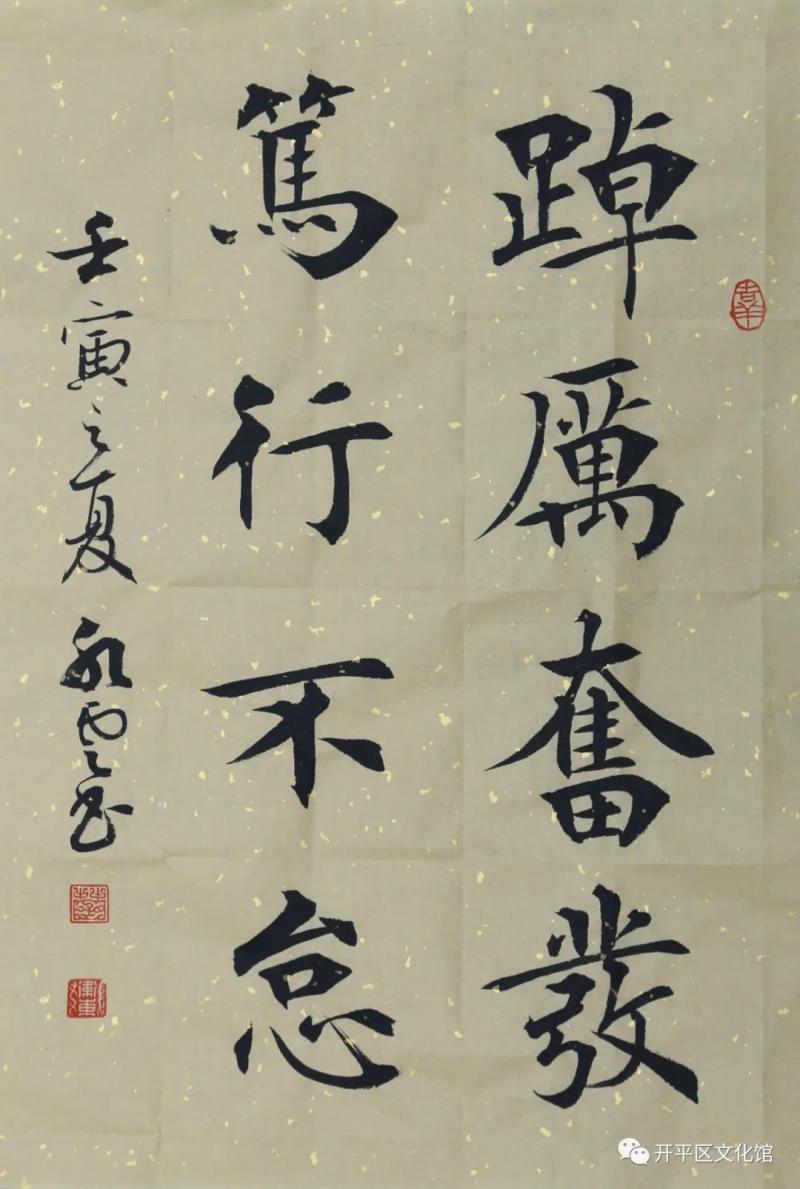 踔厲奮發
篤行不怠
壬寅之夏永雲書
开平区文化馆